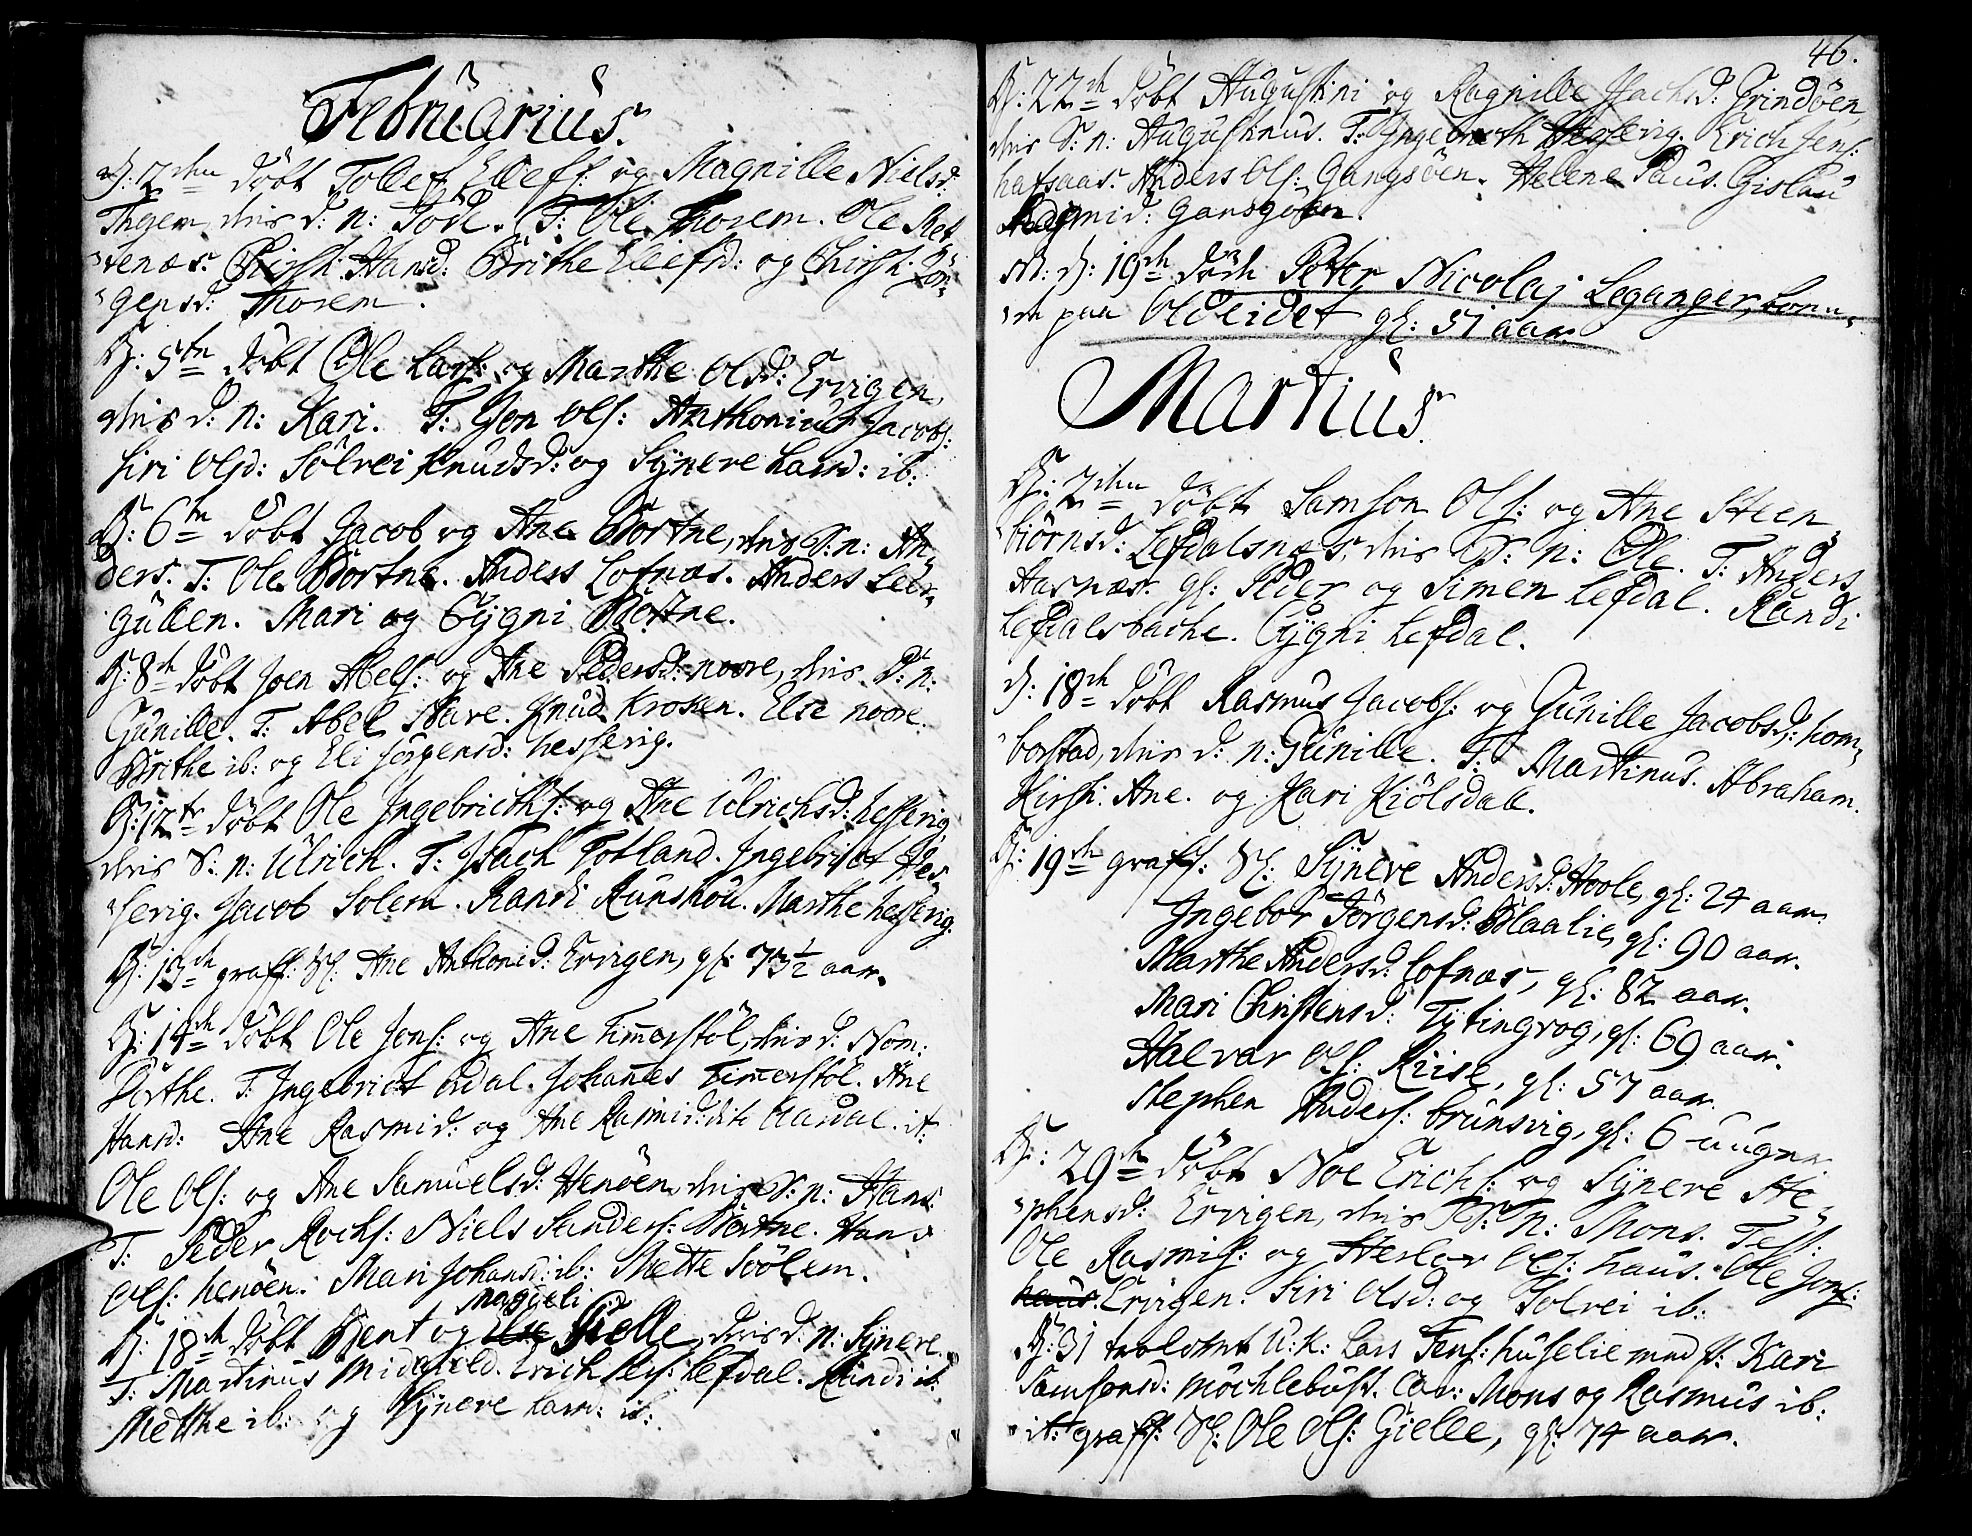 Februarius.
D: 2den döbt Tollef Ellefs: og Magnille Nielsd:
Ingem, dnis d: n: Töde. T: Ole Thorem. Ole Ret
renæs. Chirst: Hansd: Brithe Elefsd: og Chirst: Jör-
gensd: Thorem.
D: 5te döbt Ole Lars: og Marthe Olsd: Ervigen,
dnis d: n: Kari. T: Jon Ols: Anthonius Jacobs:
Siri Olsd: Sölvei Knudsd: og Synere Larsd: ib:
D: 6te döbt Jacob og Ane Bortne, dnis S: n: An
ders. T: Ole Bortne. Anders Lofnæs. Anders Leer-
gullen. Mari og Gygni Bortne.
D: 8de döbt Joen Abels: og Ane Pedersd: Nore, dnis D: n:
Gunille. T: Abel Nave. Knud Kroken. Else Nore.
Brithe ib: og Eli Jörgensd: Hesserig.
D: 12te döbt Ole Ingebricths: og Ane Ulrichsd: Hesserig,
dnis S: n: Ulrich. T: Isach Totland. Ingebrict Hes
serig. Jacob Solem. Randi Runshou. Marthe Hesserig.
D: 13de graff: Sl: Ane Anthonid: Ervigen, gl: 73½ aar.
D: 14de döbt Ole Jons: og Ane Timerstöl, dnis d: Nom:
Dorthe. T: Ingebrict Aadal. Johanes Timerstöl. Ane
Hansd: Ane Rasmid: og Ane Rasmid: dito Aardal. it:
Ole Ols: og Ane Samuelsd: Henöen, dnis S: n: Hans.
T: Peder Rochs: Niels Sanders: Bortne. Hans
Ols: Henöen. Mari Johansd: ib: Mette Soölem.
Maggeli
D: 18de döbt Bent og Else Gielle, dnis d: n: Synere.
T: Martinus Midgield. Erich Pers: Lefdal. Randi ib:
Methe ib: og Synere Larsd: ib:
46.
D: 22de döbt Augustini og Ragnille Jachsd: Grindöen,
dnis S: n: Augustinus. T: Ingebricth Hesserig. Erich Jens:
Hafsaas. Anders Ols: Gangsöen. Helene Paus. Gislau
Ragnid: Gangsöen.
D: 19de döde Peter Nicolaj Leganger, boen-
de paa Oldeidet gl: 51 aar.
Martius.
D: 2den döbt Samson Ols: og Ane Steen
biörnsd: Lefdalsnæs, dnis S: n: Ole. T: Anders
Aarnæs. gl: Peder og Simen Lefdal. Randi
Lefdalsbache. Gygni Lefdal.
D: 18de döbt Rasmus Jacobs: og Gunille Jacobsd: Hom-
borstad, dnis d: n: Gunille. T: Martinus. Abraham.
Kirst: Ane. og Kari Kiölsdal.
D: 19de graff: Sl: Synere Andersd: Hoole, gl: 24 aar.
Ingebor Jörgensd: Blaalie, gl: 90 aar.
Marthe Andersd: Lofnæs, gl: 82 aar.
Mari Christensd: Tytingvog, gl: 69 aar.
Halvar Ols: Riise, gl: 57 aar.
Stephen Anders: Brunsvig, gl: 6 uuger.
D: 29de döbt Noe Erichs: og Synere Ste-
phensd: Ervigen, dnis S: n: Mons. Test:
Ole Rasmis: og Herlov Ols: Haus. Ole Jons:
Haus. Ervigen. Siri Olsd: og Solvei ib:
D: 31 trolovet U: K: Lars Jens: Huselie med p: Kari
Samsonsd: Möchlebust. Cav: Mons og Rasmus ib:
it: graff: Sl: Ole Ols: Gielle, gl: 74 aar.